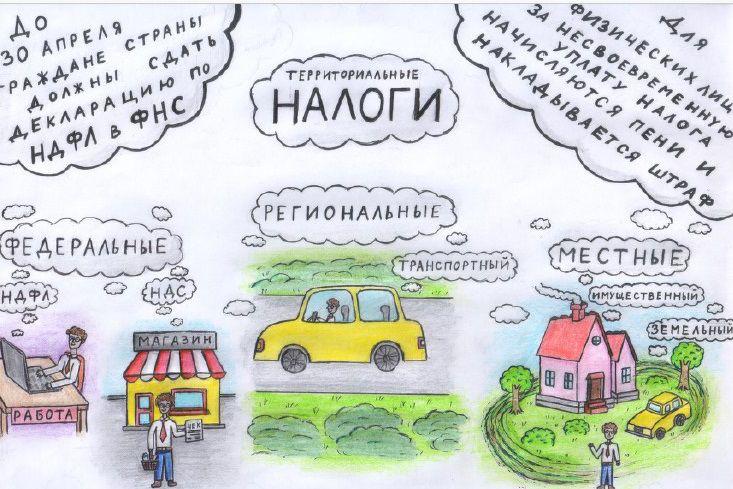 ДО
30 АПРЕЛЯ
ГРАЖДАНЕ СТРАНЫ
ДОЛЖНЫ СДАТЬ
ДЕКЛАРАЦИЮ ПО
НДФЛ В ФНС
ТЕРРИТОРИАЛЬНЫЕ
НАЛОГИ
ДЛЯ
ФИЗИЧЕСКИХ ЛИЦ
ЗА НЕСВОЕВРЕМЕННУЮ
УПЛАТУ НАЛОГА
НАЧИСЛЯЮТСЯ ПЕНИ И
НАКЛАДЫВАЕТСЯ ШТРАФ
ФЕДЕРАЛЬНЫЕ
НДФЛ
НДС
РАБОТА
МАГАЗИН
ЧЕК
РЕГИОНАЛЬНЫЕ
ТРАНСПОРТНЫЙ
МЕСТНЫЕ
ИМУЩЕСТВЕННЫЙ
ЗЕМЕЛЬНЫЙ